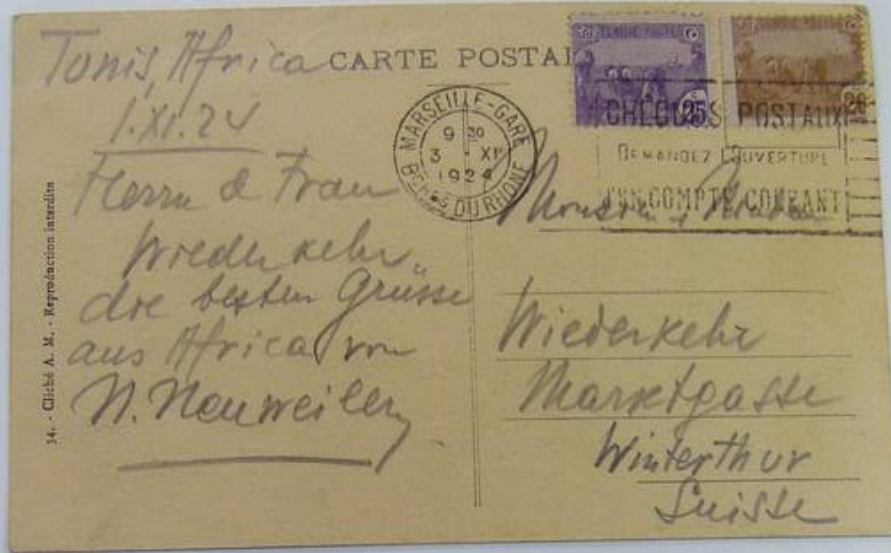 Tunis, Africa
1.XI.24
Herrn & Frau
Wiederkehr
die besten Grüsse
aus Africa von
N. Neuweiler
CARTE POSTALE
TUNISIE POSTES
25
20
MARSEILLE-GARE
9 30
3 - XI
1924
BCHES DU RHONE
CHEQUES POSTAUX
DEMANDEZ L'OUVERTURE
D'UN COMPTE COURANT
Wiederkehr
Marktgasse
Winterthur
Suisse
34. - Cliché A. M. - Reproduction interdite